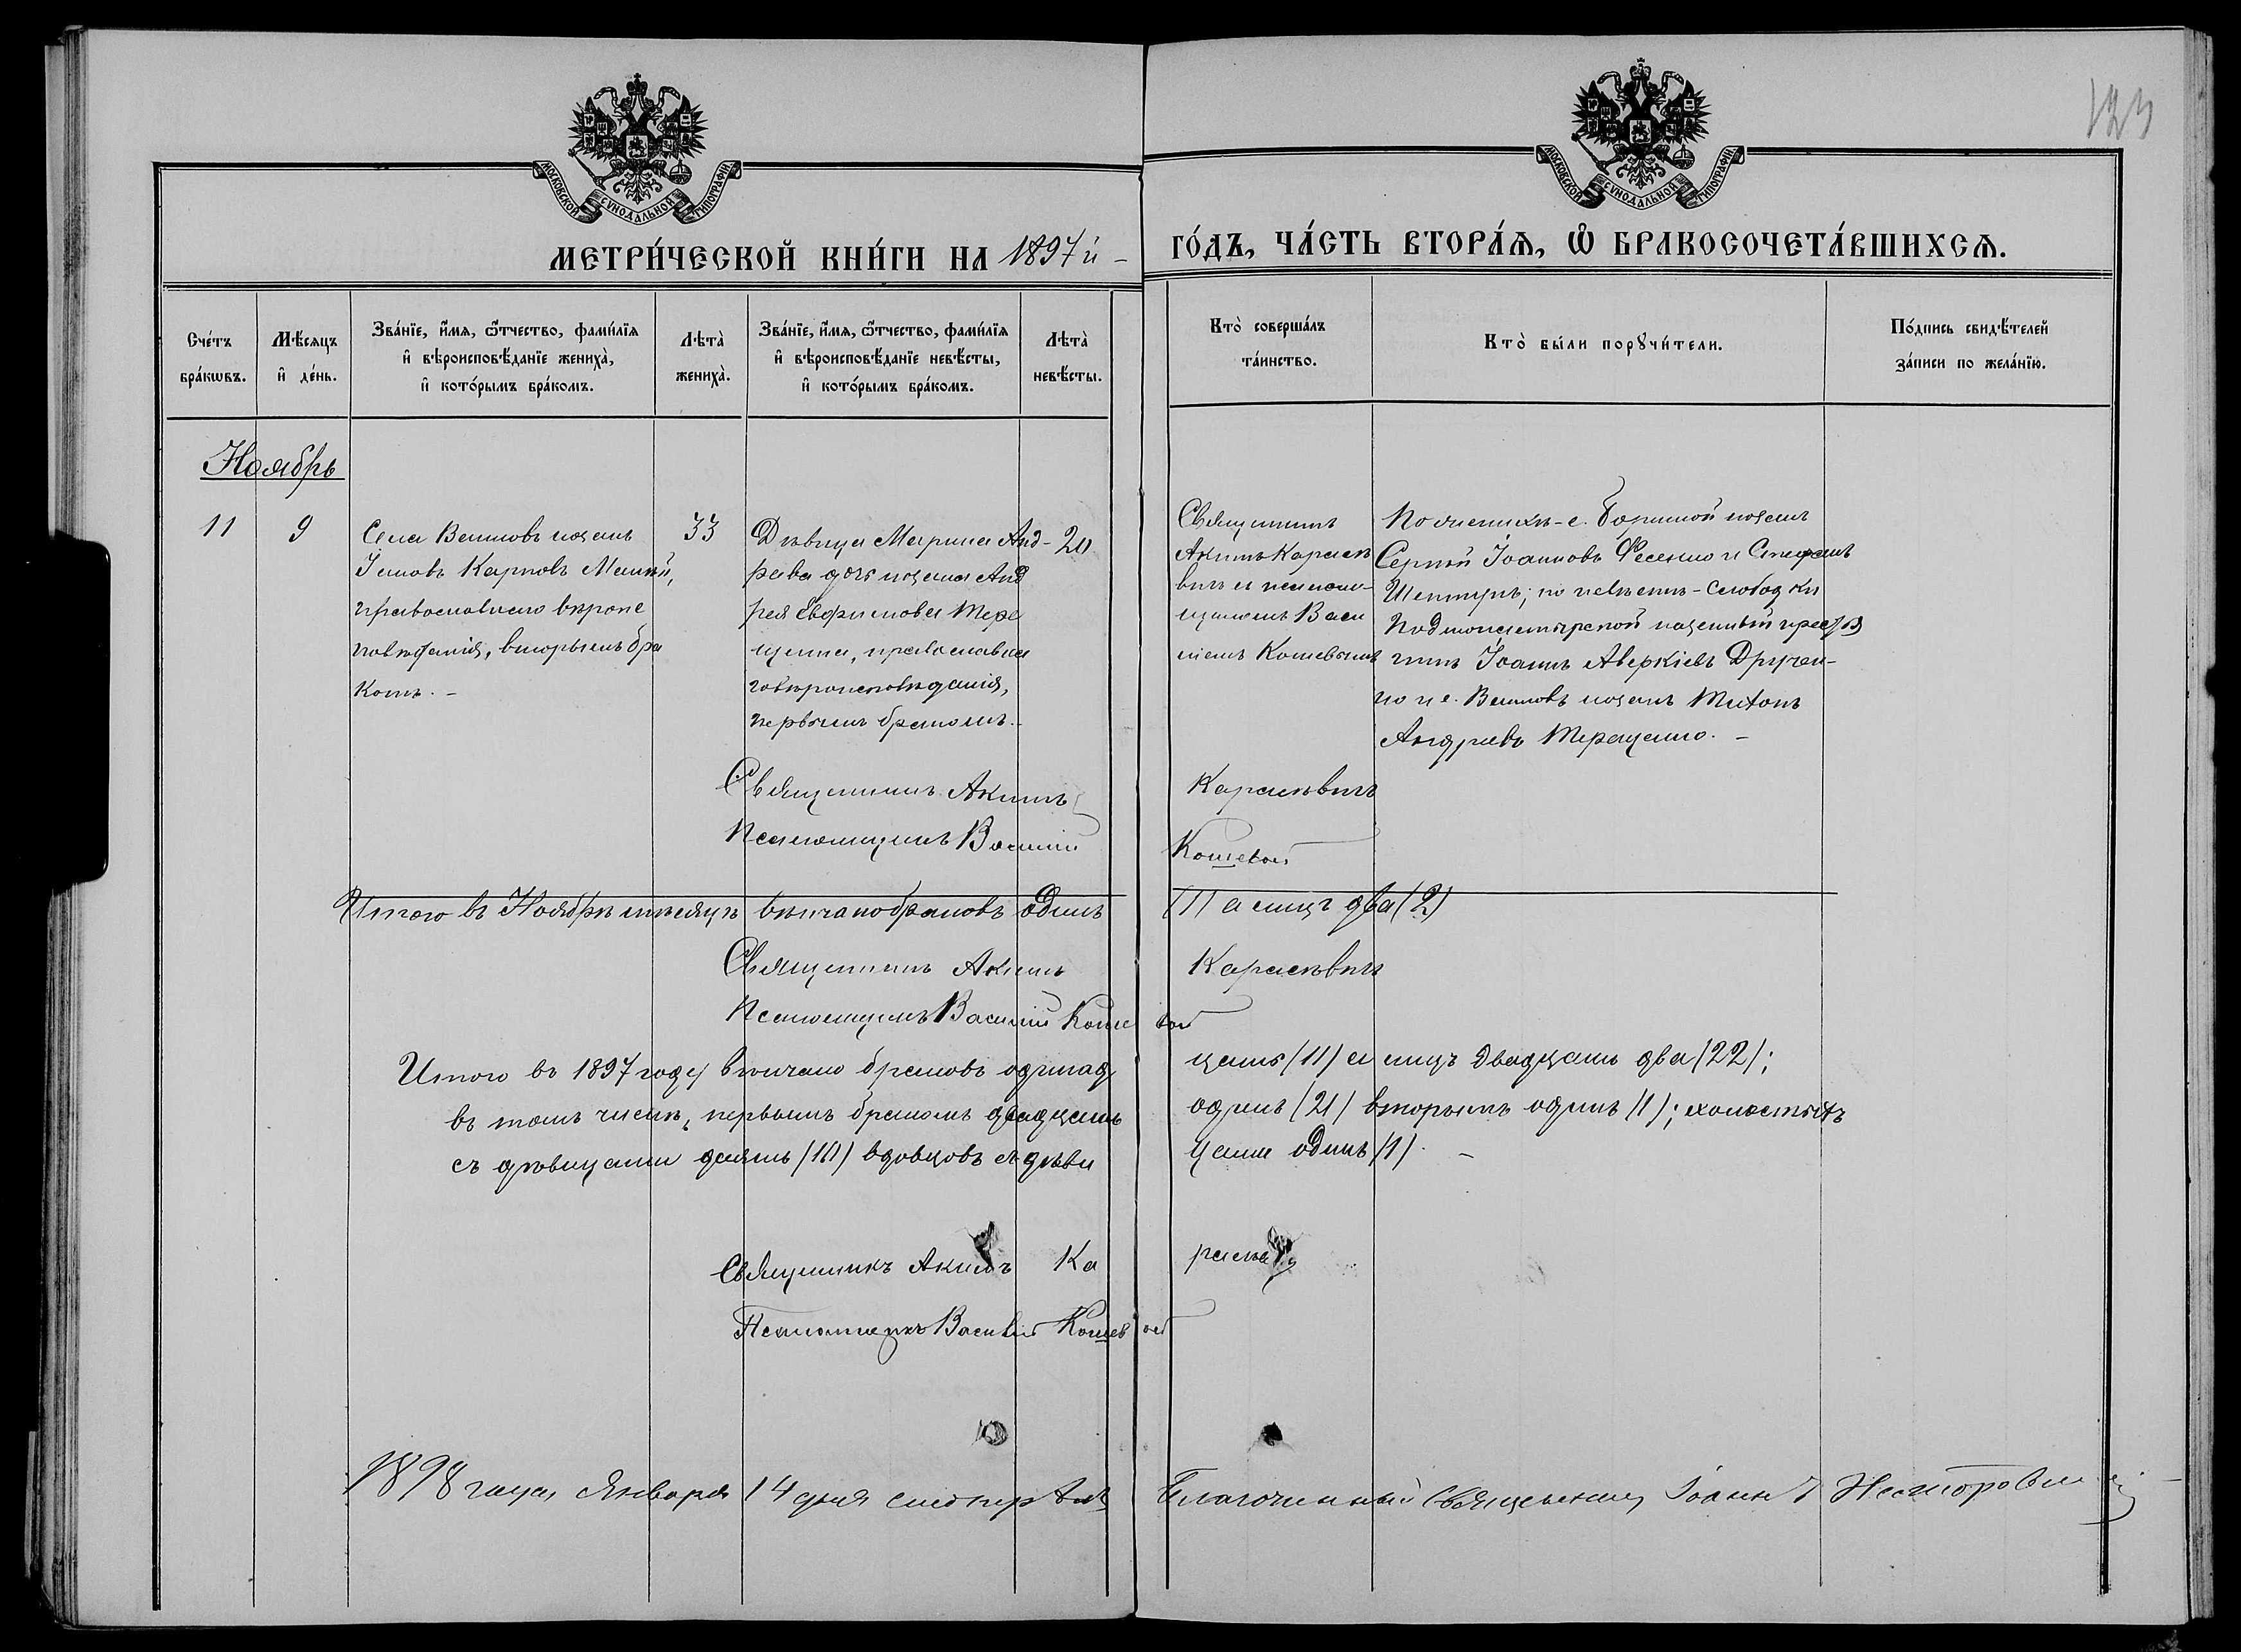 123
МОСКОВСКОЙ СѴНОДАЛЬНОЙ ТИПОГРАФІИ
МОСКОВСКОЙ СѴНОДАЛЬНОЙ ТИПОГРАФІИ
МЕТРИ́ЧЕСКОЙ КНИ́ГИ НА 1897 й – ГО́ДЪ, ЧА́СТЬ ВТОРА́Ѧ, Ѽ БРАКОСОЧЕТА́ВШИХСѦ.
Сче́тъ
бра́кѡвъ.
Мѣ́сѧцъ
и҆ де́нь.
Зва́нїе, и҆́мѧ, ѻ҆́тчество, фамилїѧ
и҆ вѣроисповѣ́данїе жениха̀,
и҆ кото́рымъ бра́комъ.
Лѣта̀
жениха̀.
Зва́нїе, и҆́мѧ, ѻ҆́тчество, фамилїѧ
и҆ вѣроисповѣ́данїе невѣ́сты,
и҆ кото́рымъ бра́комъ.
Лѣта̀
невѣ́сты.
Кто̀ соверша́лъ
та́инство.
Кто̀ бы́ли порꙋчи́тели.
По́дпись свидѣ́телей
за́писи по жела́нїю.
Ноябрь
11
9
Села Вешковъ козакъ
Іаковъ Карповъ
православнаго вѣроис
повѣданія, вторымъ бра
комъ. –
33
Дѣвица Марина Анд-
реева дочь козака Анд
рея Евфимова Тере
щенка, православна
го вѣроисповѣданія,
первымъ бракомъ. –
20
Священникъ
Акимъ Карасѣ
вичъ съ псалом-
щикомъ Васи
ліемъ Кошевымъ
По женихѣ – с. козакъ
Сергій Іоанновъ Фесенко и Стефанъ
по невѣстѣ – слободки
Подмонастырской казенный крестья
нинъ Іоаннъ Аверкіевъ
и с. Вешковъ козакъ Титовъ
Андреевъ Терещенко. –
Священникъ Акимъ Карасѣвичъ
Псаломщикъ Василій Кошевой
Итого въ Ноябрѣ мѣсяцѣ вѣнчано браковъ одинъ (1) а лицъ два (2)
Священникъ Акимъ Карасѣвичъ
Псаломщикъ Василій Кошевой
Итого въ 1897 году вѣнчано браковъ одинад цать (11) а лицъ двадцать два (22);
въ томъ числѣ, первымъ бракомъ двадцать одинъ (21) вторымъ одинъ (1); холостыхъ
съ дѣвицами десять (10) вдовцовъ съ дѣви цами одинъ (1). –
Священникъ Акимъ Ка расѣв
Псаломщикъ Василій Кошев ой
1898 года Января 14 дня Благочинный Священникъ Іоаннъ